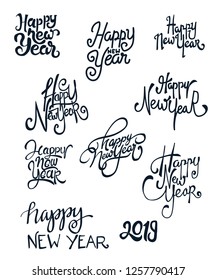 Happy
New
Year
Happy
NEW
Year
Happy
New Year
Happy
New
Year
Happy
New Year
Happy
NEW
Year
happy
New
Year
Happy
New
Year
happy
NEW YEAR
2019
shutterstock.com · 1257790417